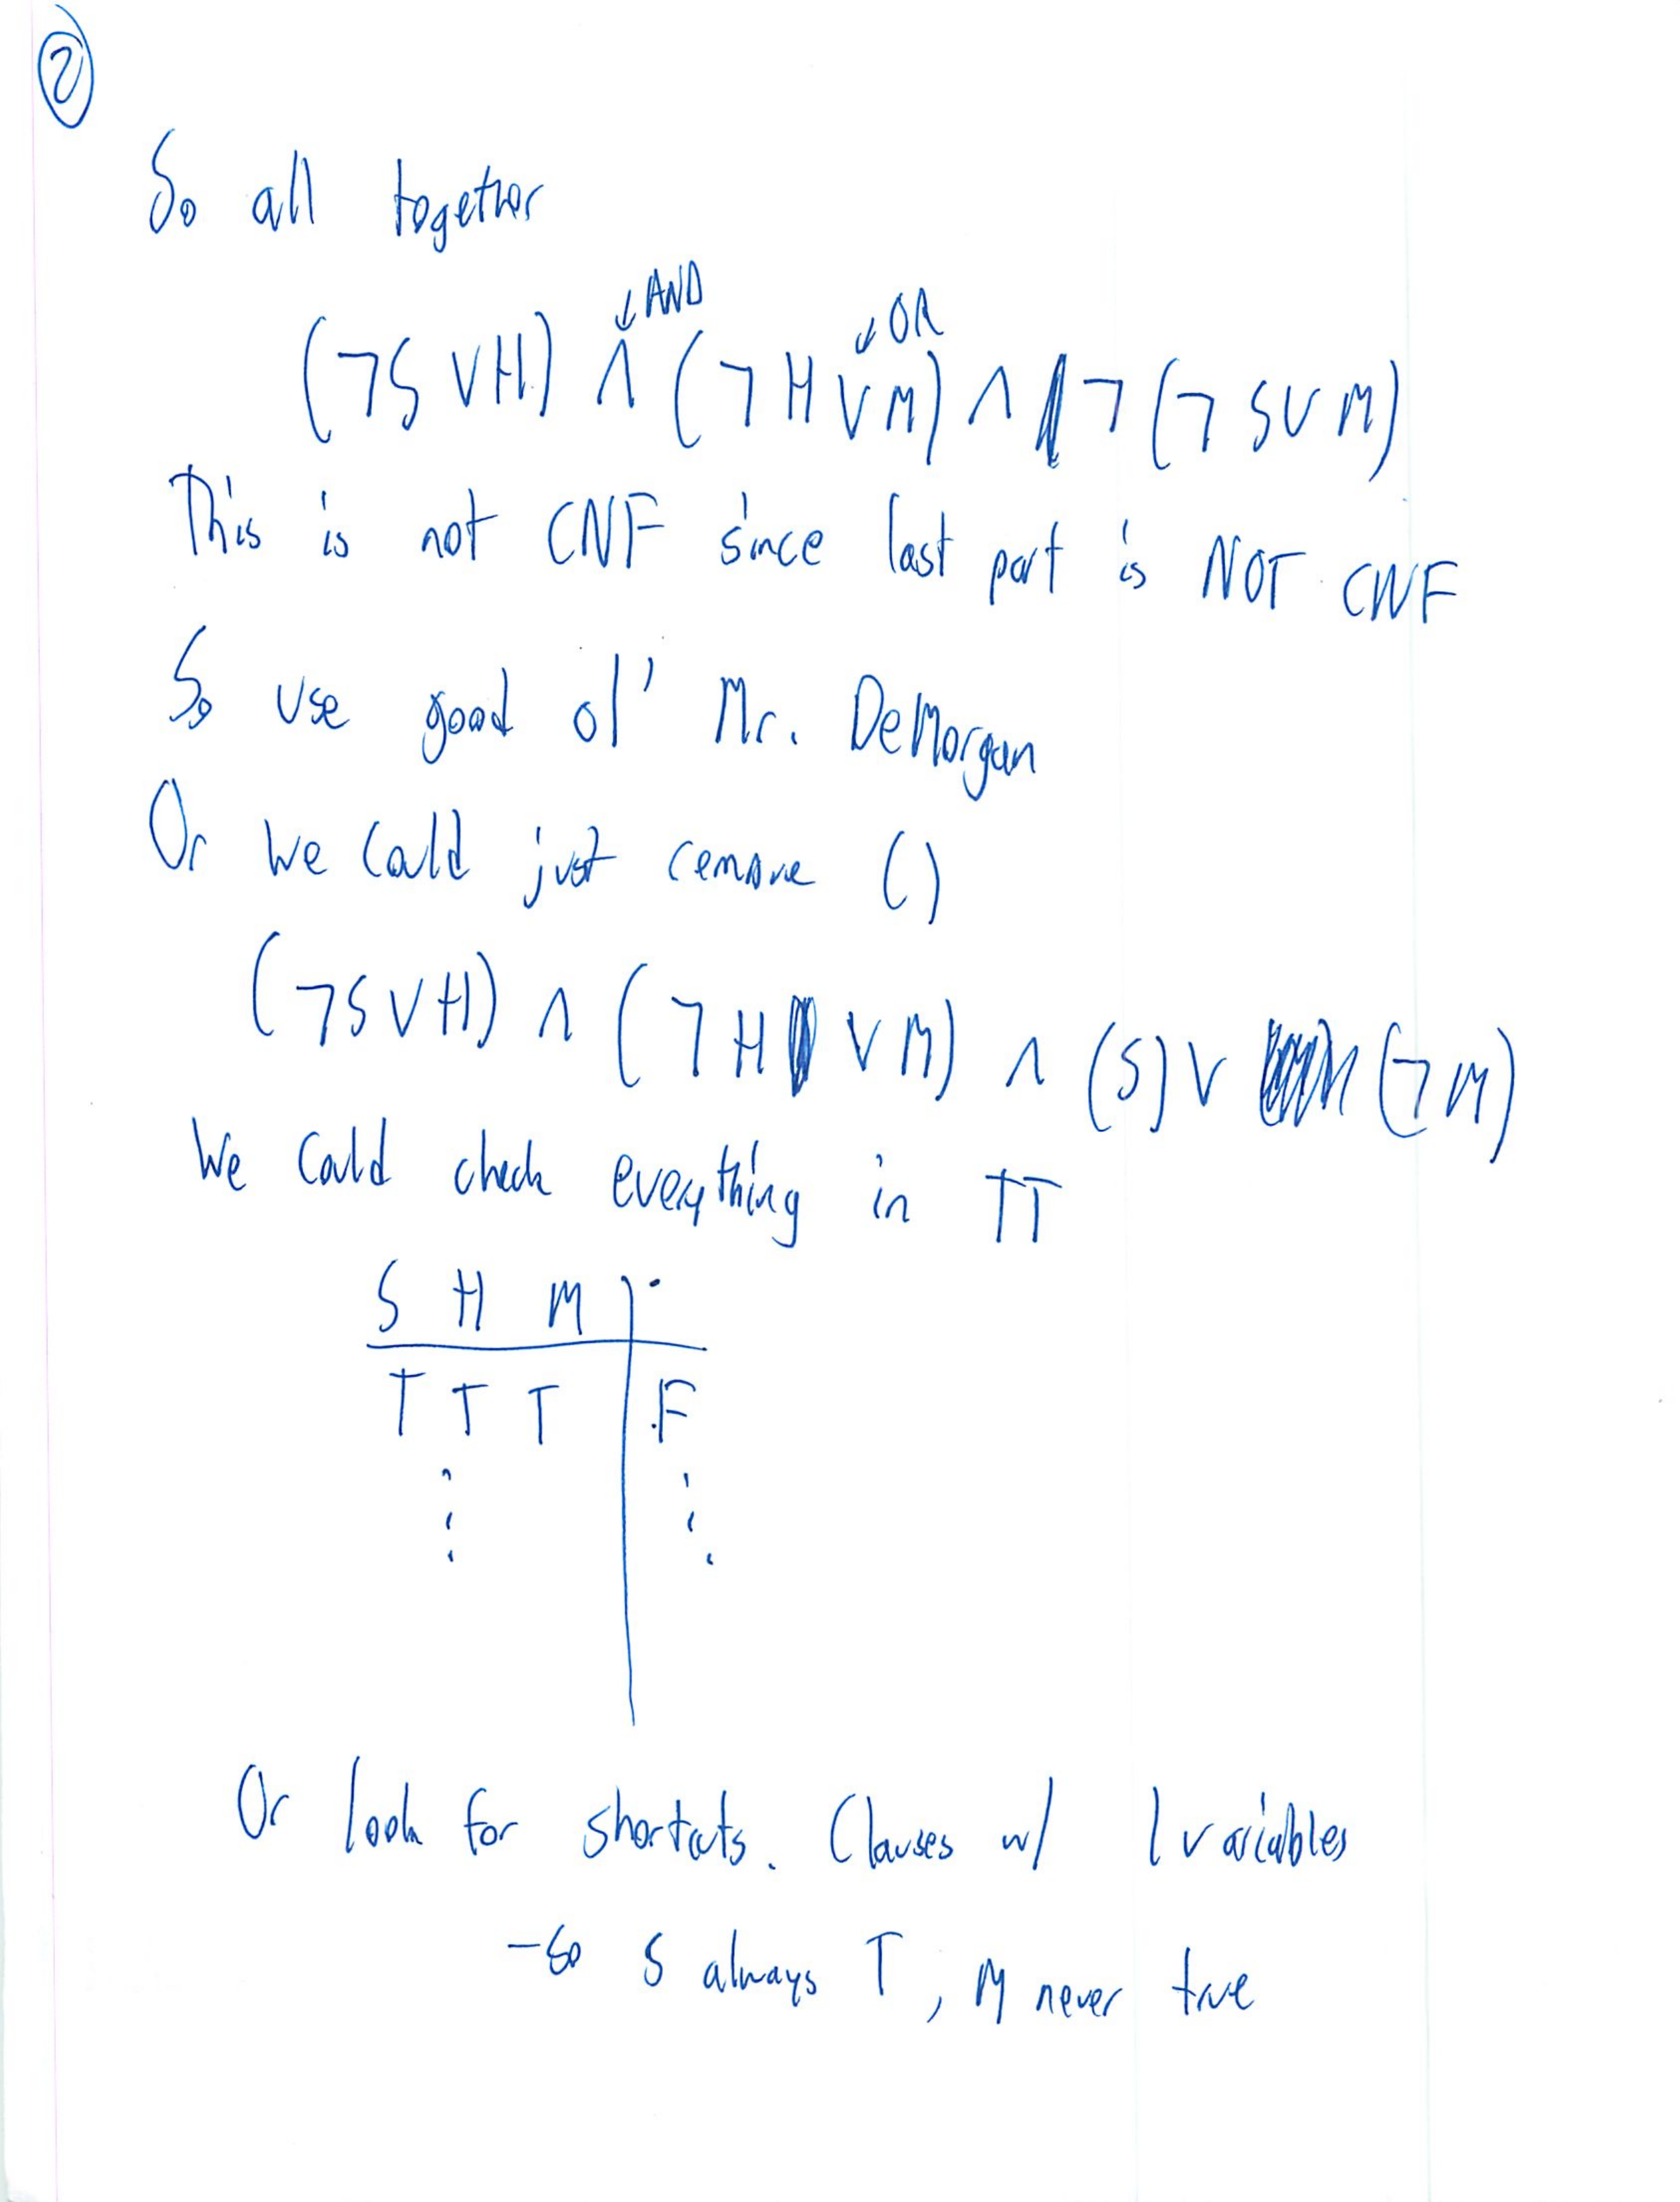 2
So all together
↓AND
↓OR
(¬S ∨ H) ∧ (¬H ∨ M) ∧ ¬(¬S ∨ M)
This is not CNF since last part is NOT CNF
So use good ol' Mr. DeMorgan
Or we could just remove ()
(¬S ∨ H) ∧ (¬H ∨ M) ∧ (S) ∨ (¬M)
We could check everything in TT
S H M
T T T F
Or look for shortcuts. Clauses w/ 1 variables
- so S always T, M never true